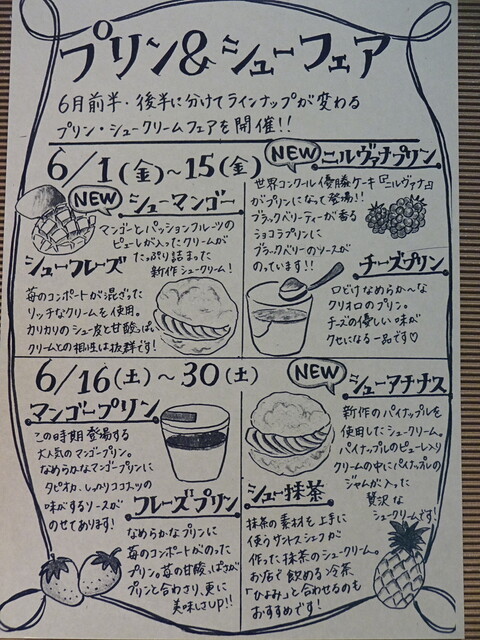 プリン&シューフェア
6月前半・後半に分けてラインナップが変わる
プリン・シュークリームフェアを開催!!
6/1(金)~15(金)
NEW
シューマンゴー
マンゴーとパッションフルーツの
ピューレが入ったクリームが
たっぷり詰まった
新作シュークリーム!
シューフレーズ
苺のコンポートが混ざった
リッチなクリームを使用。
カリカリのシュー皮と甘酸っぱい
クリームとの相性は抜群です!
NEW
ニルヴァナプリン
世界コンクール優勝ケーキ「ニルヴァナ」
がプリンになって登場!!
ブラックベリーティーが香る
ショコラプリンに
ブラックベリーのソースが
のっています!!
チーズプリン
口どけなめらか~な
クリオロのプリン。
チーズの優しい味が
クセになる一品です♡
6/16(土)~30(土)
マンゴープリン
この時期登場する
大人気のマンゴープリン。
なめらかなマンゴープリンに
タピオカ、しっかりココナッツの
味がするソースが
のせてあります!
フレーズプリン
なめらかなプリンに
苺のコンポートがのった
プリン。苺の甘酸っぱさが
プリンと合わさり、更に
美味しさUP!!
NEW
シューアナナス
新作のパイナップルを
使用したシュークリーム。
パイナップルのピューレ入り
クリームの中にパイナップルの
ジャムが入った
贅沢な
シュークリームです!
シュー抹茶
抹茶の素材を上手に
使うサントスシェフが
作った抹茶のシュークリーム。
お店で飲める冷茶
「ひよみ」と合わせるのも
おすすめです!